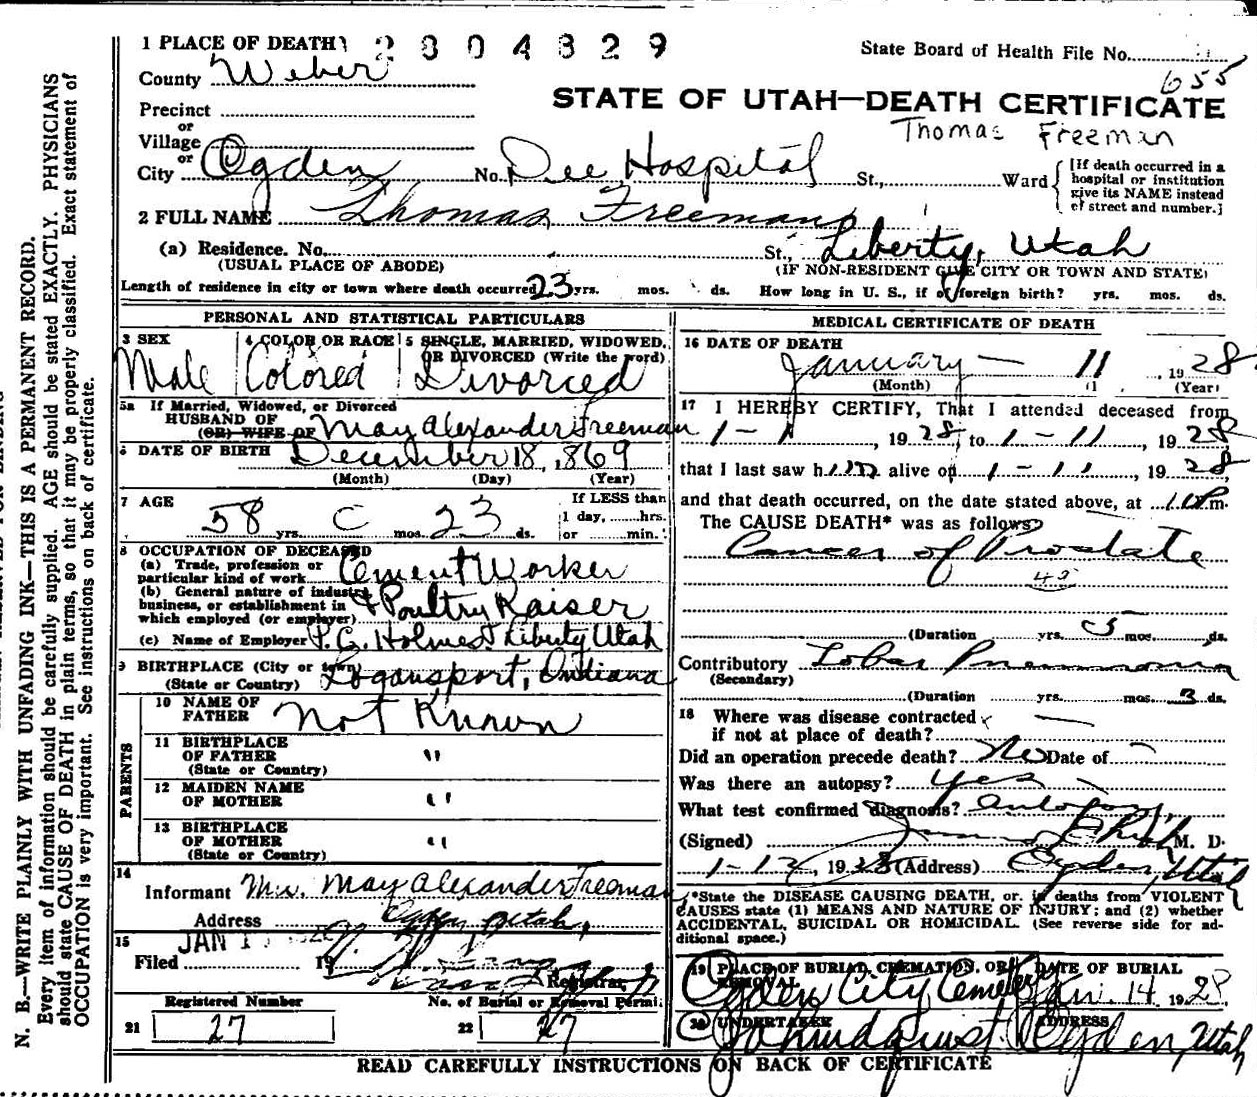 1 PLACE OF DEATH 2804829
State Board of Health File No.
County Weber
655
STATE OF UTAH—DEATH CERTIFICATE
Precinct
Thomas Freeman
or
Village
or
City Ogden No. Dee Hospital St., Ward
[If death occurred in a
hospital or institution
give its NAME instead
of street and number.]
2 FULL NAME Thomas Freeman
(a) Residence. No. St., Liberty, Utah
(USUAL PLACE OF ABODE) (IF NON-RESIDENT GIVE CITY OR TOWN AND STATE)
Length of residence in city or town where death occurred 23 yrs. mos. ds. How long in U. S., if of foreign birth? yrs. mos. ds.
PERSONAL AND STATISTICAL PARTICULARS
3 SEX 4 COLOR OR RACE 5 SINGLE, MARRIED, WIDOWED,
OR DIVORCED (Write the word)
Male Colored Divorced
5a If Married, Widowed, or Divorced
HUSBAND OF
(OR) WIFE OF May Alexander Freeman
6 DATE OF BIRTH December 18, 1869
(Month) (Day) (Year)
7 AGE If LESS than
58 yrs. 0 mos. 23 ds. 1 day, ......hrs.
or ......min.
8 OCCUPATION OF DECEASED
(a) Trade, profession or
particular kind of work Cement Worker
(b) General nature of industry,
business, or establishment in
which employed (or employer) & Poultry Raiser
(c) Name of Employer P. G. Holmes Liberty Utah
9 BIRTHPLACE (City or town)
(State or Country) Logansport, Indiana
PARENTS
10 NAME OF
FATHER Not Known
11 BIRTHPLACE
OF FATHER "
(State or Country)
12 MAIDEN NAME
OF MOTHER "
13 BIRTHPLACE
OF MOTHER "
(State or Country)
14
Informant Mrs. May Alexander Freeman
Address Ogden, Utah,
15 JAN
Filed 19
Registrar
Registered Number No. of Burial or Removal Permit
21 27 22 27
MEDICAL CERTIFICATE OF DEATH
16 DATE OF DEATH
January — 11, 1928
(Month) (Year)
17 I HEREBY CERTIFY, That I attended deceased from
1-1, 1928, to 1-11, 1928
that I last saw him alive on 1-11, 1928
and that death occurred, on the date stated above, at 10 P m.
The CAUSE DEATH* was as follows:
Cancer of Prostate
49
(Duration yrs. mos. ds.
Contributory Lobar Pneumonia
(Secondary)
(Duration yrs. mos. 3 ds.
18 Where was disease contracted
if not at place of death?
Did an operation precede death? No Date of
Was there an autopsy? yes
What test confirmed diagnosis? Autopsy
(Signed) M. D.
1-12, 1928 (Address) Ogden, Utah
*State the DISEASE CAUSING DEATH, or, in deaths from VIOLENT
CAUSES state (1) MEANS AND NATURE OF INJURY; and (2) whether
ACCIDENTAL, SUICIDAL OR HOMICIDAL. (See reverse side for ad-
ditional space.)
19 PLACE OF BURIAL, CREMATION, OR DATE OF BURIAL
REMOVAL
Ogden City Cemetery Jan. 14 1928
20 UNDERTAKER ADDRESS
Ogden, Utah
READ CAREFULLY INSTRUCTIONS ON BACK OF CERTIFICATE
N. B.—WRITE PLAINLY WITH UNFADING INK—THIS IS A PERMANENT RECORD.
Every item of information should be carefully supplied. AGE should be stated EXACTLY. PHYSICIANS
should state CAUSE OF DEATH in plain terms, so that it may be properly classified. Exact statement of
OCCUPATION is very important. See instructions on back of certificate.